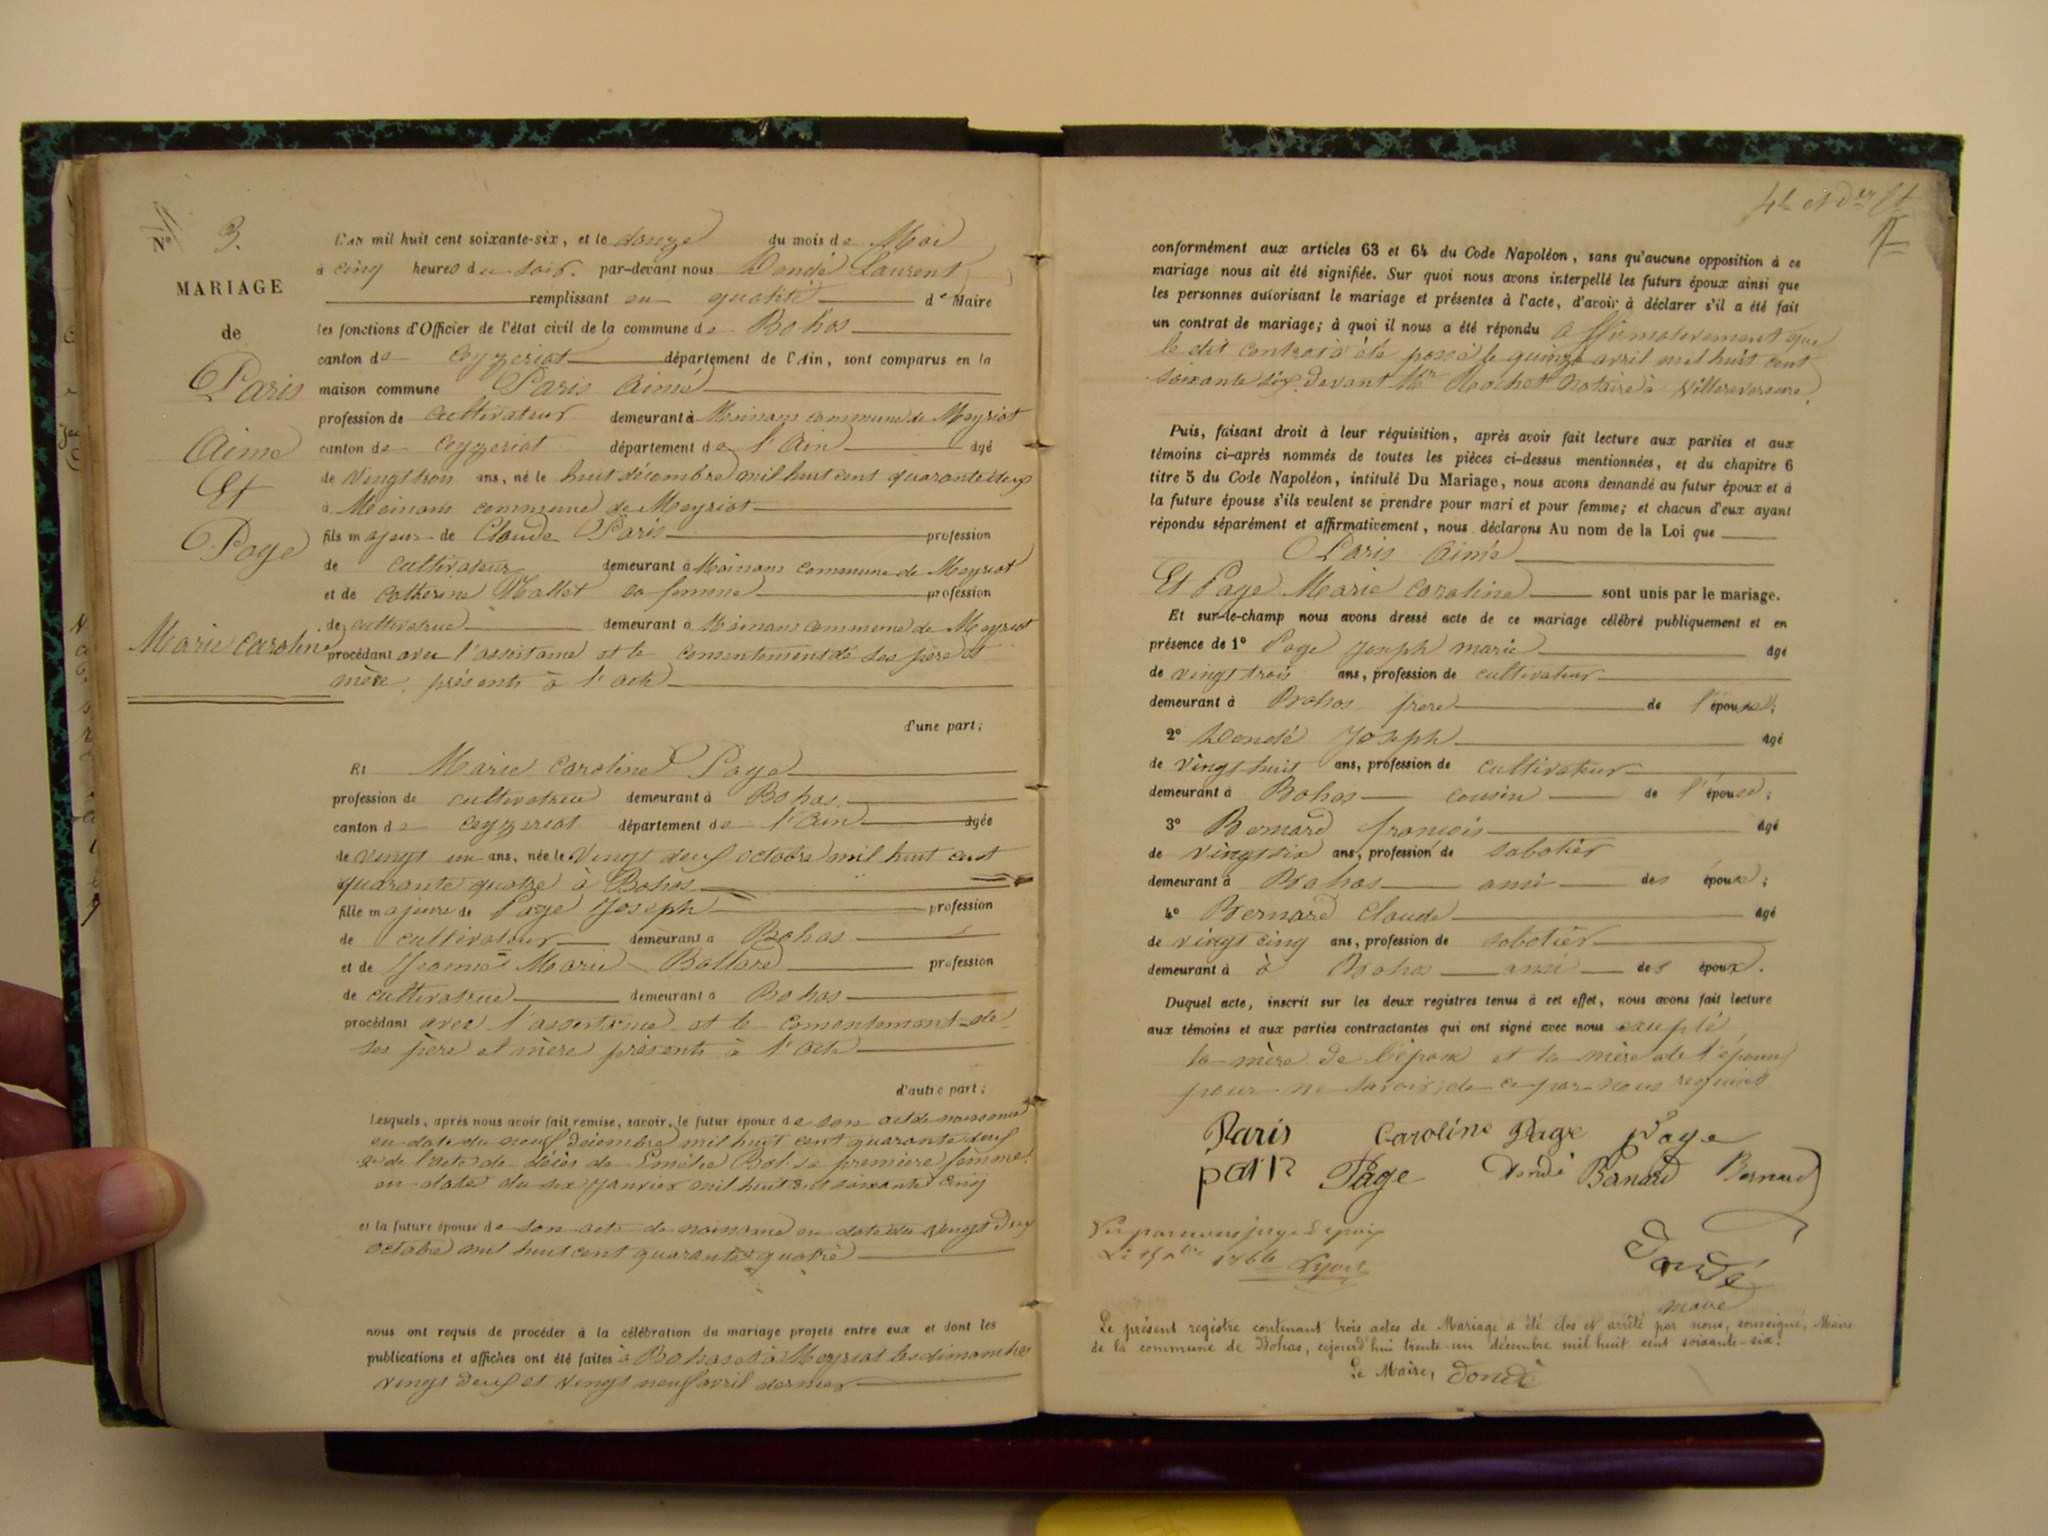 N° 3.
MARIAGE
de
Paris
Aimé
Et
Page
Marie Caroline
L'an mil huit cent soixante-six, et le douze du mois de Mai
à cinq heures du soir. par-devant nous Dondé Laurent
remplissant en qualité de Maire
les fonctions d'Officier de l'état civil de la commune de Bohas
canton de Ceyzeriat département de l'Ain, sont comparus en la
maison commune Paris Aimé
profession de cultivateur demeurant à Moinans commune de Meyriat
canton de Ceyzeriat département de l'Ain âgé
de vingt trois ans, né le huit décembre mil huit cent quarante deux
à Moinans commune de Meyriat
fils majeur de Claude Paris profession
de cultivateur demeurant à Moinans commune de Meyriat
et de Catherine Mallet sa femme profession
de cultivatrice demeurant à Moinans commune de Meyriat
procédant avec l'assistance et le consentement de ses père et
mère, présents à l'acte
d'une part;
Et Marie Caroline Page
profession de cultivatrice demeurant à Bohas
canton de Ceyzeriat département de l'Ain âgée
de vingt un ans, née le vingt deux octobre mil huit cent
quarante quatre à Bohas
fille majeure de Page Joseph profession
de cultivateur demeurant à Bohas
et de Jeanne Marie Ballard profession
de cultivatrice demeurant à Bohas
procédant avec l'assistance et le consentement de
ses père et mère présents à l'acte
d'autre part;
Lesquels, après nous avoir fait remise, savoir, le futur époux de son acte de naissance
en date du neuf décembre mil huit cent quarante deux
et de l'acte de décès de Emélie Bol sa première femme
en date du six janvier mil huit cent soixante cinq
et la future épouse de son acte de naissance en date du vingt deux
octobre mil huit cent quarante quatre
nous ont requis de procéder à la célébration du mariage projeté entre eux et dont les
publications et affiches ont été faites à Bohas et à Meyriat les dimanches
vingt deux et vingt neuf avril dernier
conformément aux articles 63 et 64 du Code Napoléon, sans qu'aucune opposition à ce
mariage nous ait été signifiée. Sur quoi nous avons interpellé les futurs époux ainsi que
les personnes autorisant le mariage et présentes à l'acte, d'avoir à déclarer s'il a été fait
un contrat de mariage; à quoi il nous a été répondu affirmativement que
le dit contrat a été passé le quinze avril mil huit cent
soixante six devant Me Rochet notaire à Villereversure.
Puis, faisant droit à leur réquisition, après avoir fait lecture aux parties et aux
témoins ci-après nommés de toutes les pièces ci-dessus mentionnées, et du chapitre 6
titre 5 du Code Napoléon, intitulé Du Mariage, nous avons demandé au futur époux et à
la future épouse s'ils veulent se prendre pour mari et pour femme; et chacun d'eux ayant
répondu séparément et affirmativement, nous déclarons Au nom de la Loi que
Paris Aimé
Et Page Marie Caroline sont unis par le mariage.
Et sur-le-champ nous avons dressé acte de ce mariage célébré publiquement et en
présence de 1° Page Joseph Marie âgé
de vingt trois ans, profession de cultivateur
demeurant à Bohas frère de l'épouse;
2° Dondé Joseph âgé
de vingt huit ans, profession de cultivateur
demeurant à Bohas cousin de l'épouse;
3° Bernard françois âgé
de vingt six ans, profession de sabotier
demeurant à Bohas ami des époux;
4° Bernard Claude âgé
de vingt cinq ans, profession de sabotier
demeurant à à Bohas ami des époux.
Duquel acte, inscrit sur les deux registres tenus à cet effet, nous avons fait lecture
aux témoins et aux parties contractantes qui ont signé avec nous excepté
la mère de l'époux et la mère de l'épouse
pour ne savoir, de ce par nous requises
Paris Caroline Page Page
pari Page Dondé Banard Bernard
Dondé
maire
Vu par nous juge de paix
1866
Le présent registre contenant trois actes de Mariage a été clos et arrêté par nous, soussigné, Maire
de la commune de Bohas, cejourd'hui trente-un décembre mil huit cent soixante-six.
Le Maire, Dondé